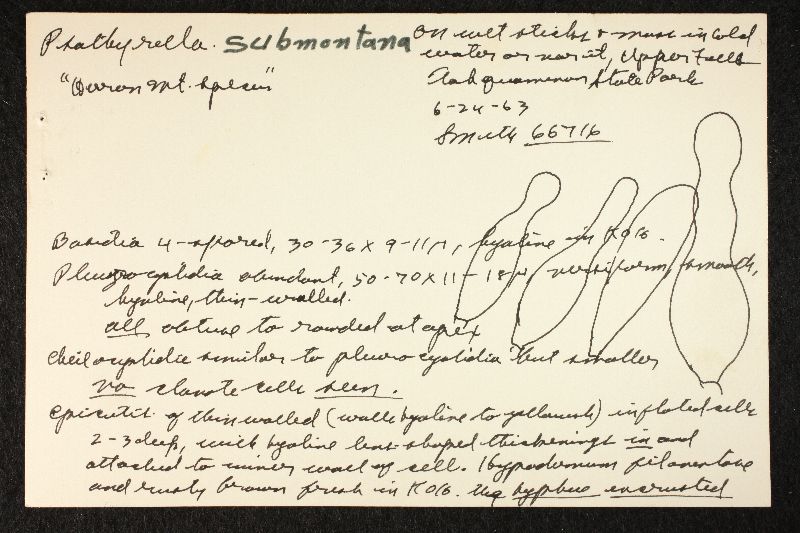 Psathyrella submontana
"Huron Mt. species"
On wet sticks & moss in cold
water or near it, Upper Falls
Tahquamenon State Park
6-24-63
Smith 66716
Basidia 4-spored, 30-36 x 9-11 µ, hyaline in KOH.
Pleurocystidia abundant, 50-70 x 11-18 µ, utriform, smooth,
hyaline, thin-walled.
all obtuse to rounded at apex
Cheilocystidia similar to pleurocystidia but smaller
no clavate cells seen.
Epicutis of thin walled (walls hyaline to yellowish) inflated cells
2-3 deep, with hyaline lens-shaped thickenings in and
attached to inner wall of cell. Hypodermium filamentose
and rusty brown fresh in KOH. the hyphae encrusted